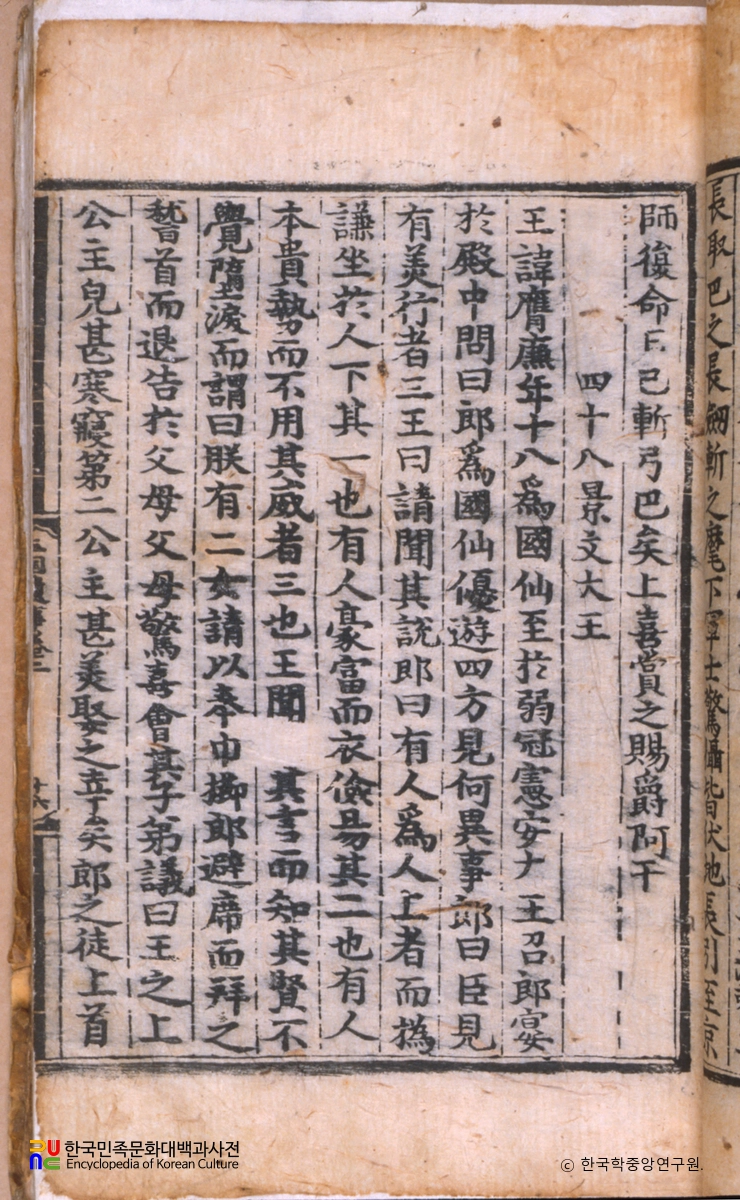 長取巴之長劒斬之麾下軍士驚懾皆伏地長引至京
師復命曰已斬弓巴矣上喜賞之賜爵阿干
四十八景文大王
王諱膺廉年十八爲國仙至於弱冠憲安大王召郎宴
於殿中問曰郎爲國仙優遊四方見何異事郎曰臣見
有美行者三王曰請聞其說郎曰有人爲人上者而撝
謙坐於人下其一也有人豪富而衣儉易其二也有人
本貴勢而不用其威者三也王聞 其言而知其賢不
覺墮淚而謂曰朕有二女請以奉巾櫛郎避席而拜之
稽首而退告於父母父母驚喜會其子弟議曰王之上
公主皃甚寒寢第二公主甚美娶之幸矣郎之徒上首
한국민족문화대백과사전
Encyclopedia of Korean Culture
© 한국학중앙연구원.